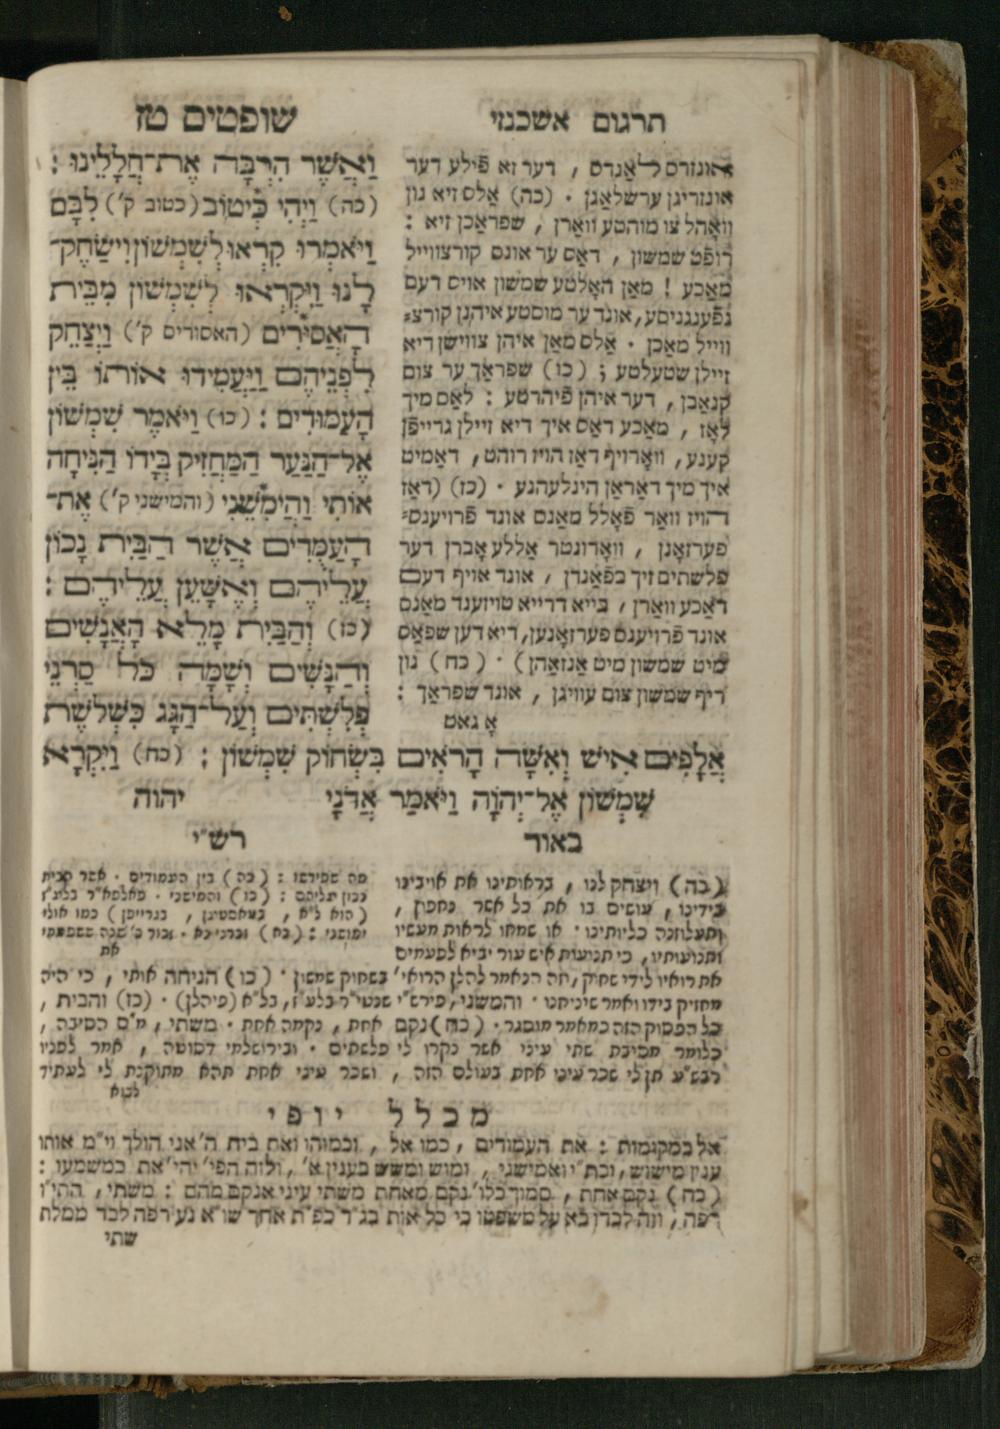 תרגום אשכנזי
שופטים טז
אונזרס לאַנדס , דער זא פֿילע דער
אונזריגן ערשלאַגן . (כה) אַלס זיא נון
וואָהל צו מוהטע וואַרן , שפראַכן זיא :
רופֿט שמשון , דאַס ער אונס קורצווייל
מאַכע ! מאַן האָלטע שמשון אויס דעם
געפֿענגניסע, אונד ער מוסטע איהנן קורצ=
ווייל מאַכן . אַלס מאַן איהן צווישן דיא
זיילן שטעלטע ; (כו) שפראַך ער צום
קנאַבן , דער איהן פֿיהרטע : לאַס מיך
לאָז , מאַכע דאַס איך דיא זיילן גרייפֿן
קענע, וואָרויף דאַז הויז רוהט , דאַמיט
איך מיך דאַראַן הינלעהנע . (כז) (דאַז
הויז וואַר פֿאָלל מאַנס אונד פֿרויענס=
פערזאָנן , וואָרונטר אַללע אָברן דער
פלשתים זיך בפֿאַנדן , אונד אויף דעם
דאַכע וואַרן , בייא דרייא טויזענד מאַנס
אונד פֿרויענס פערזאָנען, דיא דען שפאַס
מיט שמשון מיט אַנזאַהן) . (כח) נון
ריף שמשון צום עוויגן , אונד שפראַך :
אָ גאט
וַאֲשֶׁר הִרְבָּה אֶת־חֲלָלֵינוּ :
(כה) וַיְהִי כְּיטוֹב (כטוב ק') לִבָּם
וַיֹּאמְרוּ קִרְאוּ לְשִׁמְשׁוֹן וִישַׂחֶק־
לָנוּ וַיִּקְרְאוּ לְשִׁמְשׁוֹן מִבֵּית
הָאֲסִירִים (האסורים ק') וַיְצַחֵק
לִפְנֵיהֶם וַיַּעֲמִידוּ אוֹתוֹ בֵּין
הָעַמּוּדִים : (כו) וַיֹּאמֶר שִׁמְשׁוֹן
אֶל־הַנַּעַר הַמַּחֲזִיק בְּיָדוֹ הַנִּיחָה
אוֹתִי וַהֲיִמִשֵׁנִי (והמישני ק') אֶת־
הָעַמֻּדִים אֲשֶׁר הַבַּיִת נָכוֹן
עֲלֵיהֶם וְאֶשָּׁעֵן עֲלֵיהֶם :
(כז) וְהַבַּיִת מָלֵא הָאֲנָשִׁים
וְהַנָּשִׁים וְשָׁמָּה כֹּל סַרְנֵי
פְלִשְׁתִּים וְעַל־הַגָּג כִּשְׁלֹשֶׁת
אֲלָפִים אִישׁ וְאִשָּׁה הָרֹאִים בִּשְׂחוֹק שִׁמְשׁוֹן : (כח) וַיִּקְרָא
שִׁמְשׁוֹן אֶל־יְהוָֹה וַיֹּאמַר אֲדֹנָי
יהוה
באור
(כה) ויצחק לנו , בראותינו את אויבינו
בידינו , עושים בו את כל אשר נחפון ,
ותעלוזנה כליותינו . או שמחו לראות מעשיו
ותנועותיו, כי תנועות איש עור יביא לפעמים
רש"י
מה שפירשו : (כה) בין העמודים . אשר הבית
נכון עליהם : (כו) והמישני . פאלפא"ר בלע"ז
(הוא ל"א , בעאסטיגן , בגרייפן) כמו אולי
ימושני : (כח) וזכרני נא . זכור כ' שנה ששפטתי
את
את רואיו לידי שחוק, וזה הנאמר להלן הרואי' בשחוק שמשון . (כו) הניחה אותי , כי היה
מחזיק בידו ואמר שיניחנו . והמשני, פירש"י שנטי"ר בלע"ז, בל"א (פיהלן) . (כז) והבית ,
כל הפסוק הזה כמאמר מוסגר . (כח) נקם אחת , נקמה אחת . משתי , מ"ם הסיבה ,
כלומר מסיבת שתי עיני אשר נקרו לי פלשתים . ובירושלמי דסוטה , אמר לפניו
רבש"ע תן לי שכר עיני אחת בעולם הזה , ושכר עיני אחת תהא מתוקנת לי לעתיד
לבוא
מכלל יופי
אל במקומות : את העמודים , כמו אל , וכמוהו ואת בית ה' אני הולך וי"מ אותו
ענין מישוש, וכת"י ואמישני , ומוש ומשש בענין א' , ולזה הפי' יהי' את כמשמעו :
(כח) נקם אחת , סמוך כלו' נקם מאחת משתי עיני אנקם מהם : משתי , התי"ו
רפה , וזה לבדו בא על משפטו כי כל אות בג"ד כפ"ת אחר שו"א נע רפה לבד ממלת
שתי